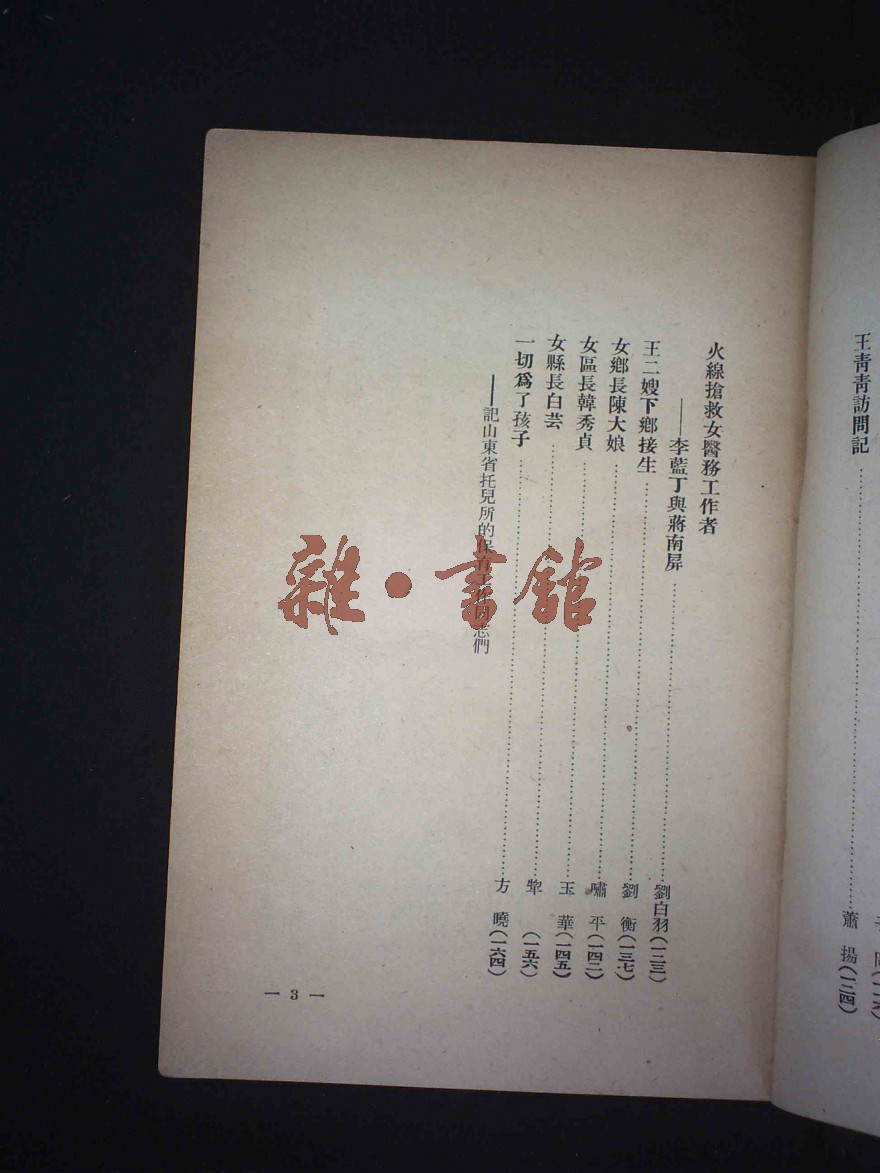 王青青訪問記……蕭揚(一二四)
火線搶救女醫務工作者
——李藍丁與蔣南屏……劉白羽
王二嫂下鄉接生……劉衡(一三七)
女鄉長陳大娘……嘯平(一四二)
女區長韓秀貞……玉華(一四五)
女縣長白芸……犂(一五六)
一切為了孩子……方曉(一六四)
——記山東省托兒所的保育工作同志們
— 3 —
雜·書館